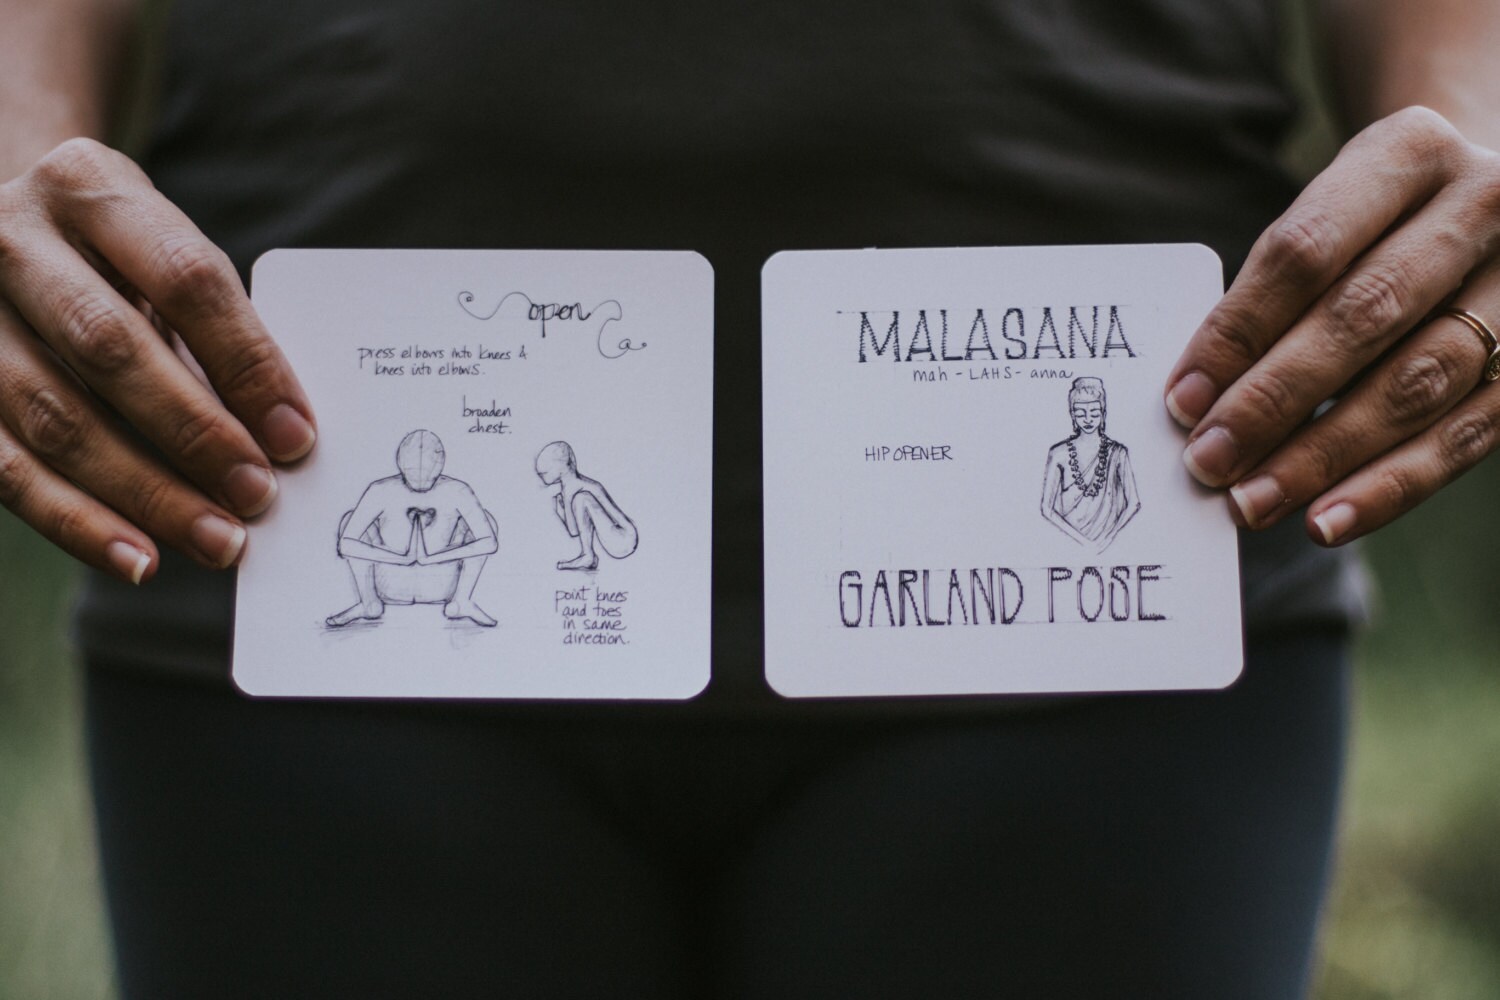 open
press elbows into knees &
knees into elbows.
broaden
chest.
point knees
and toes
in same
direction.
MALASANA
mah - LAHS - anna
HIP OPENER
GARLAND POSE